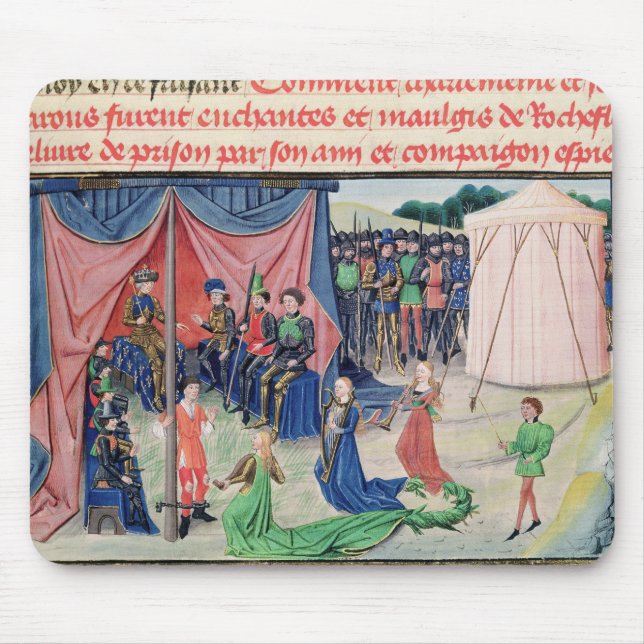 en ce faisant Comment charlemeine et s
arons furent enchantes et maulgis de Rochefl
eliure de prison par son ami et compaignon espie